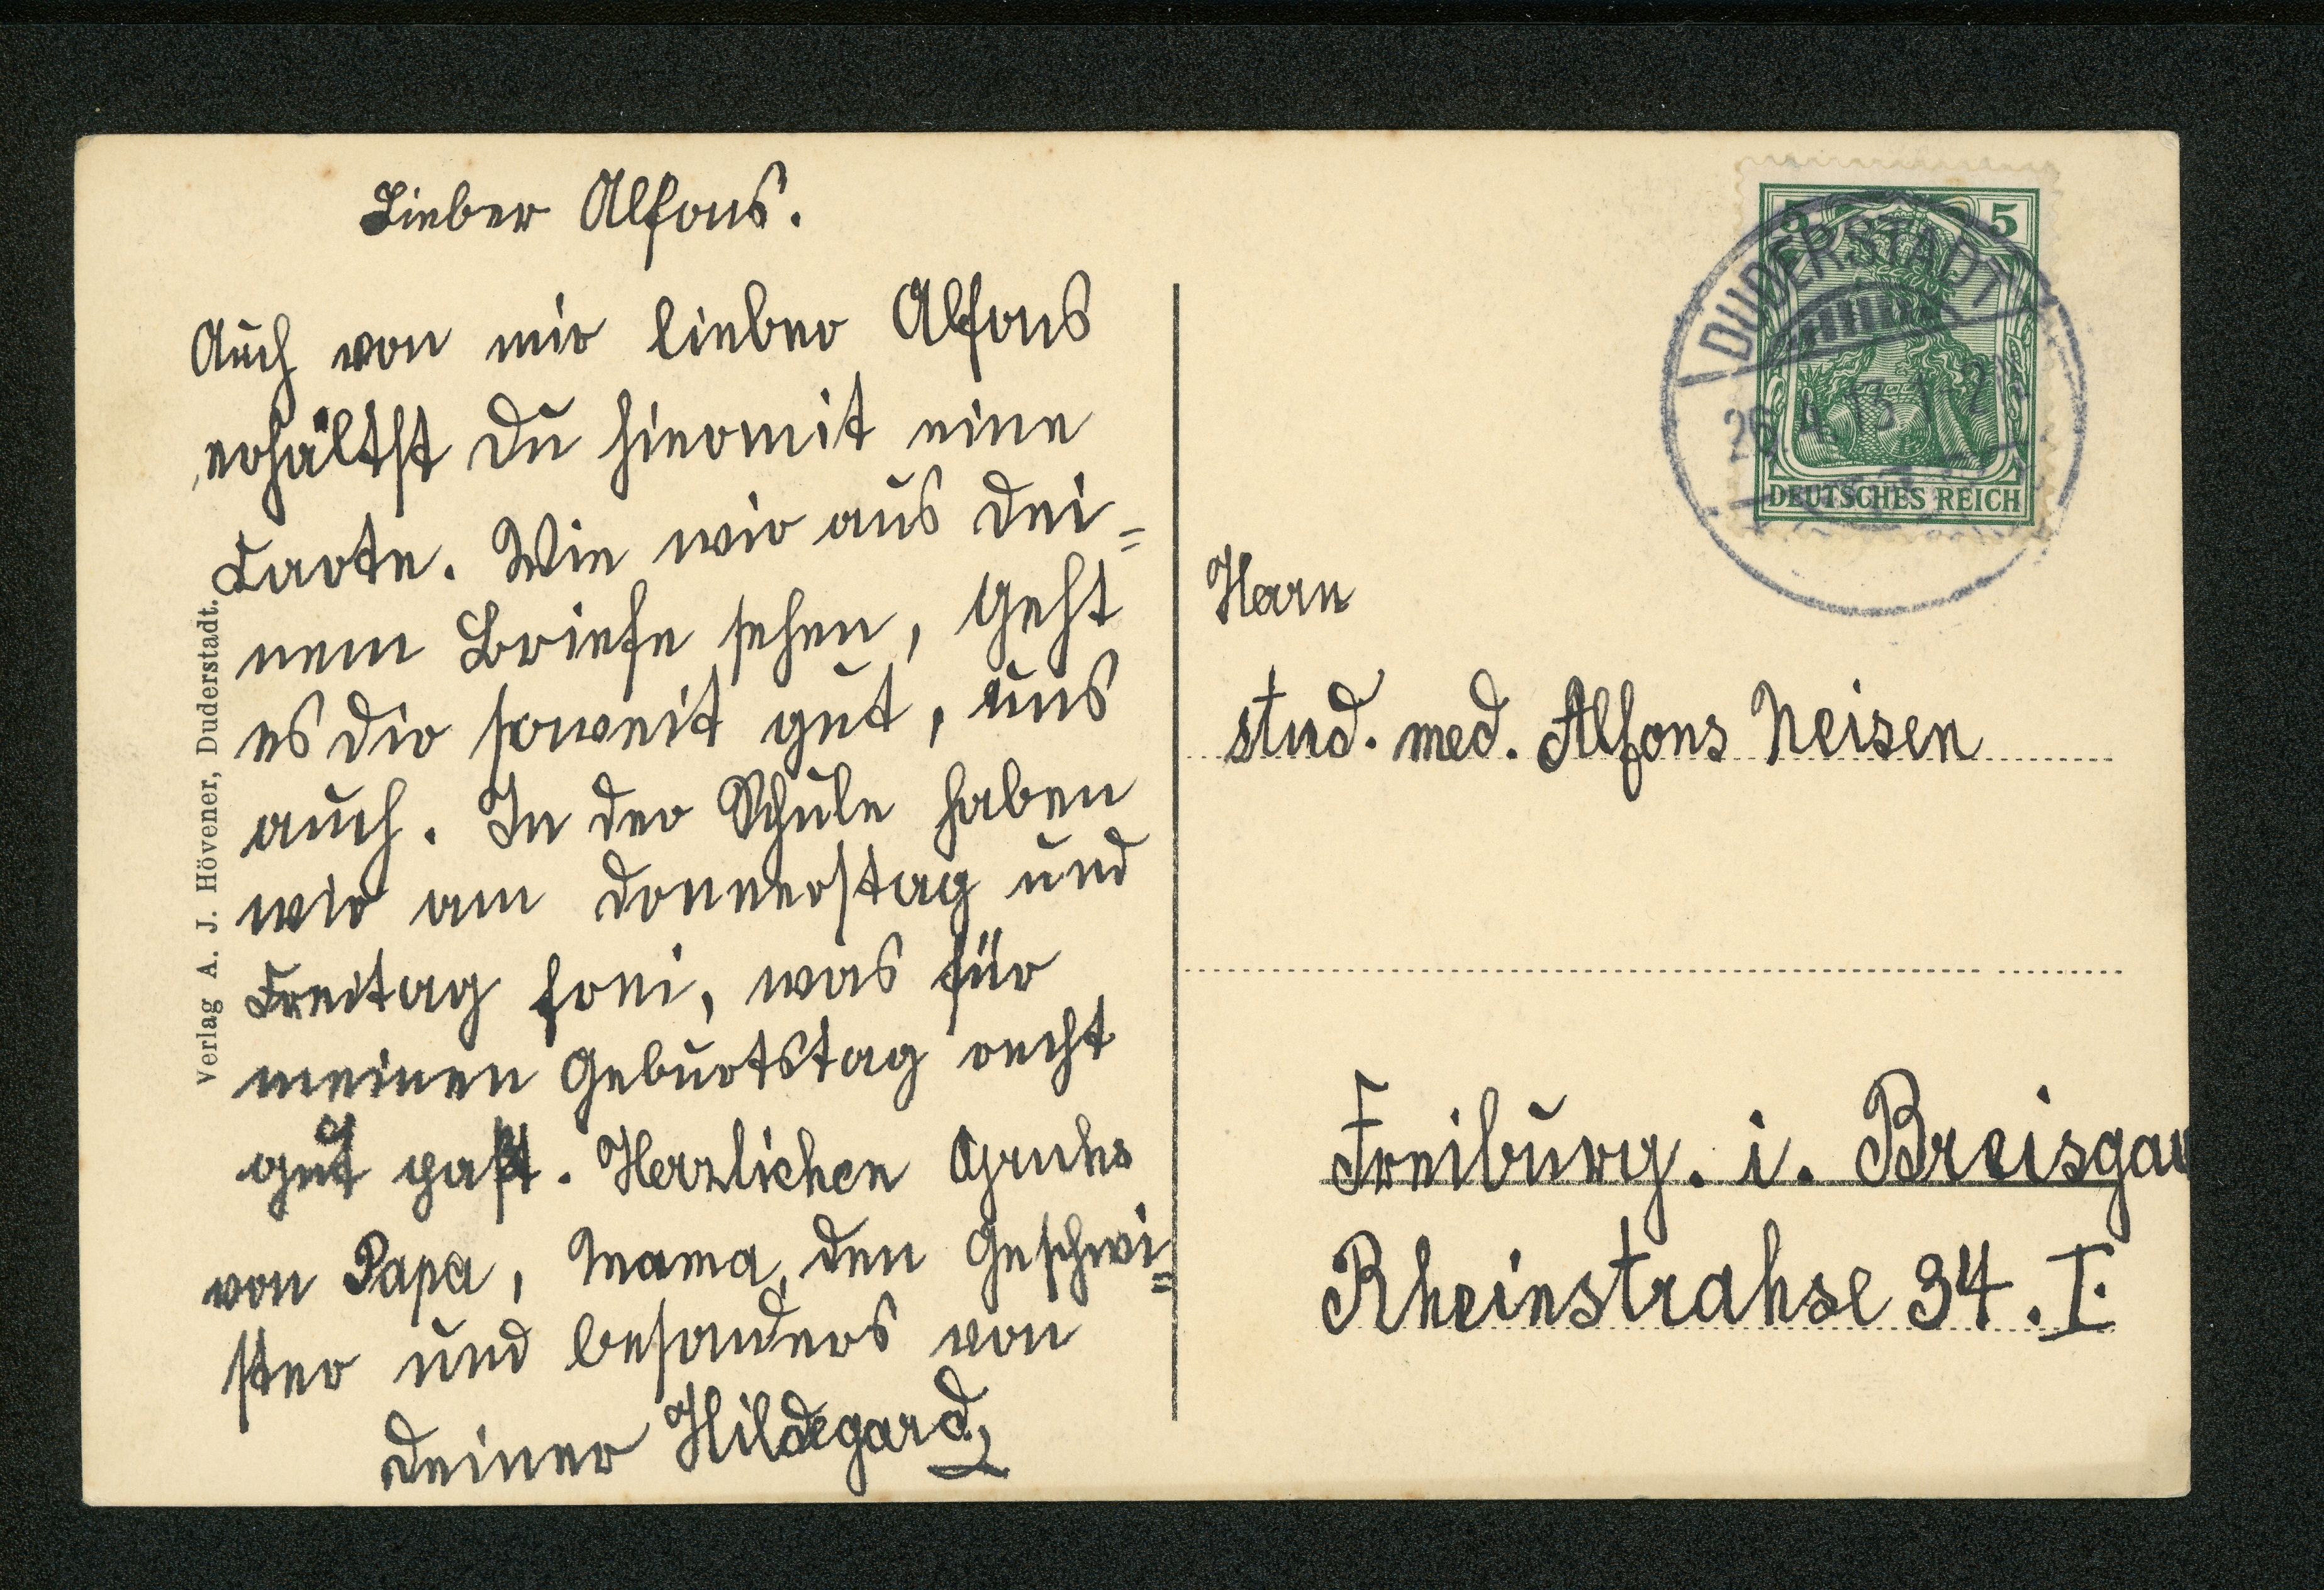 Lieber Alfons.
Auch von mir lieber Alfons
erhältst Du hiermit eine
Carte. Wie wir aus Dei=
nem Briefe sehen, geht
es Dir soweit gut, uns
auch. In der Schule haben
wir am Donnerstag und
Freitag frei, was für
meinen Geburtstag recht
gut paßt. Herzlichen Gruhs
von Papa, Mama, den Geschwi=
ster und besonders von
Deiner Hildegard
Verlag A. J. Hövener, Duderstadt.
5 5
DUDERSTADT
26.4.13.1-2N
DEUTSCHES REICH
Herrn
stud. med. Alfons Neisen
Freiburg. i. Breisgau
Rheinstrahse 34. I.